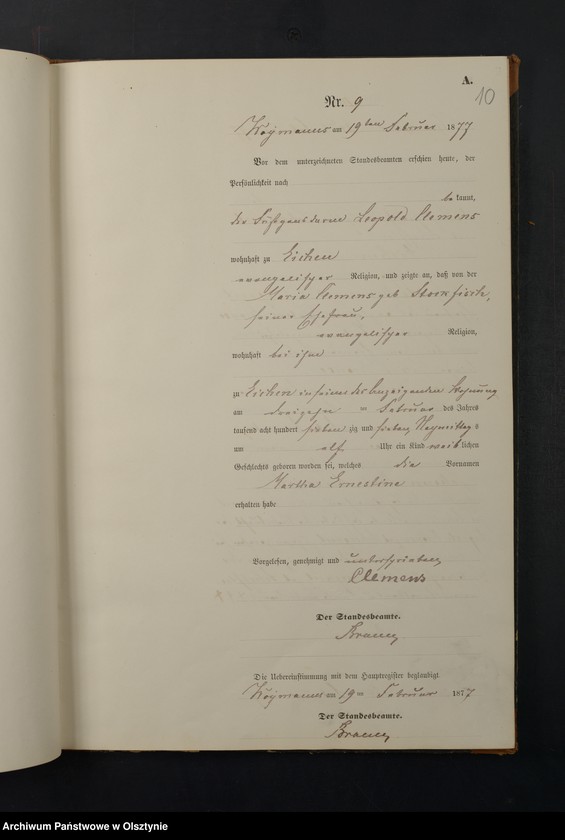 A.
10
Nr. 9
am 19ten Februar 1877
Vor dem unterzeichneten Standesbeamten erschien heute, der
Persönlichkeit nach
be kannt,
der Leopold Clemens
wohnhaft zu Eichen
evangelischer Religion, und zeigte an, daß von der
Maria Clemens geb Stockfisch,
seiner Ehefrau,
evangelischer Religion,
wohnhaft bei ihm
zu Eichen in seiner des Anzeigenden Wohnung
am dreizehn ten Februar des Jahres
tausend acht hundert sieben zig und sieben Nachmittag s
um elf Uhr ein Kind weib lichen
Geschlechts geboren worden sei, welches die Vornamen
Martha Ernestine
erhalten habe
Vorgelesen, genehmigt und unterschrieben
Clemens
Der Standesbeamte.
Die Uebereinstimmung mit dem Hauptregister beglaubigt
am 19ten Februar 1877
Der Standesbeamte.
Archiwum Państwowe w Olsztynie